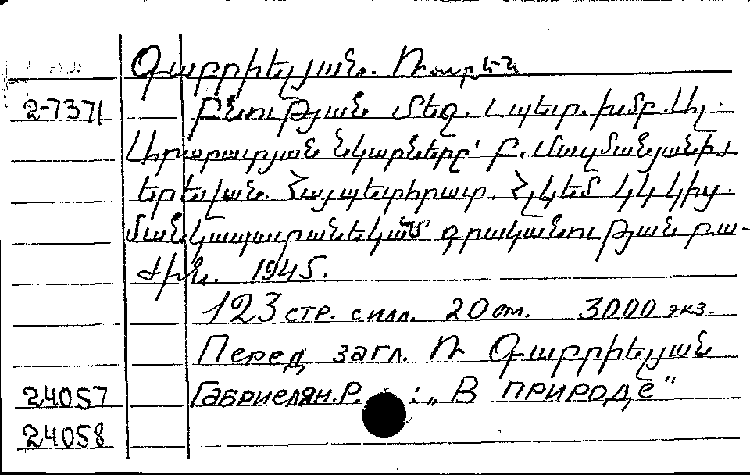 Գաբրիելյան. Ռուբեն
2-7371 Բնության մեջ. պետ. խմբ. Ալ.
Արարատյան նկարները՝ Բ.
Երևան. Հայպետհրատ. ՀԼԿԵՄ ԿԿ կից.
մանկապատանեկան գրականության բա-
ժին. 1945.
123 стр. с илл. 20 см. 3000 экз.
Перед загл. Ռ Գաբրիելյան
24057 Габриелян. Р. : „В природе"
24058